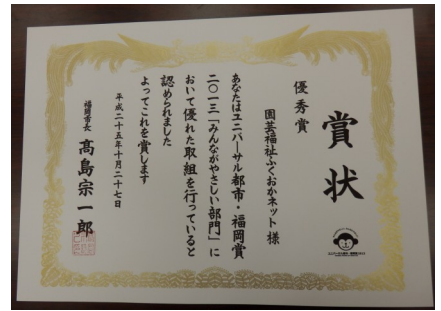 賞状
優秀賞
園芸福祉ふくおかネット様
あなたはユニバーサル都市・福岡賞
二〇一三「みんながやさしい部門」に
おいて優れた取組を行っていると
認められました
よってこれを賞します
平成二十五年十月二十七日
福岡市長 髙島宗一郎